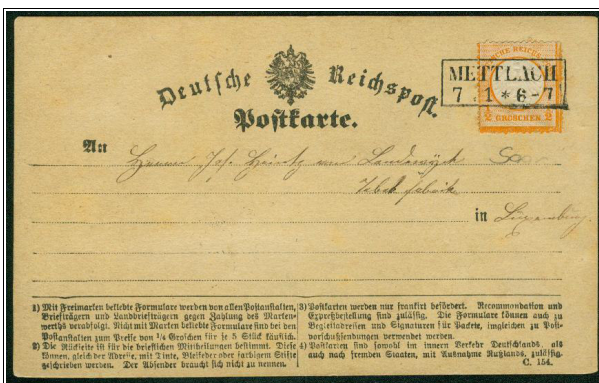 Deutsche Reichspost
Postkarte.
DEUTSCHE REICHS
METTLACH
7 1 * 6-7
1/2 GROSCHEN 1/2
An Herrn Jos. Heintz van Landewyck
Tabak fabrik
in Luxemburg.
1) Mit Freimarken beklebte Formulare werden von allen Postanstalten,
Briefträgern und Landbriefträgern gegen Zahlung des Marken-
werths verabfolgt. Nicht mit Marken beklebte Formulare sind bei den
Postanstalten zum Preise von 1/4 Groschen für je 5 Stück käuflich.
2) Die Rückseite ist für die brieflichen Mittheilungen bestimmt. Diese
können, gleich der Adresse, mit Tinte, Bleifeder oder farbigem Stifte
geschrieben werden. Der Absender braucht sich nicht zu nennen.
3) Postkarten werden nur frankirt befördert. Recommandation und
Expreßbestellung sind zulässig. Die Formulare können auch zu
Begleitadressen und Signaturen für Packete, imgleichen zu Post-
vorschußsendungen verwendet werden.
4) Postkarten sind sowohl im innern Verkehr Deutschlands, als
auch nach fremden Staaten, mit Ausnahme Rußlands, zulässig.
C. 154.